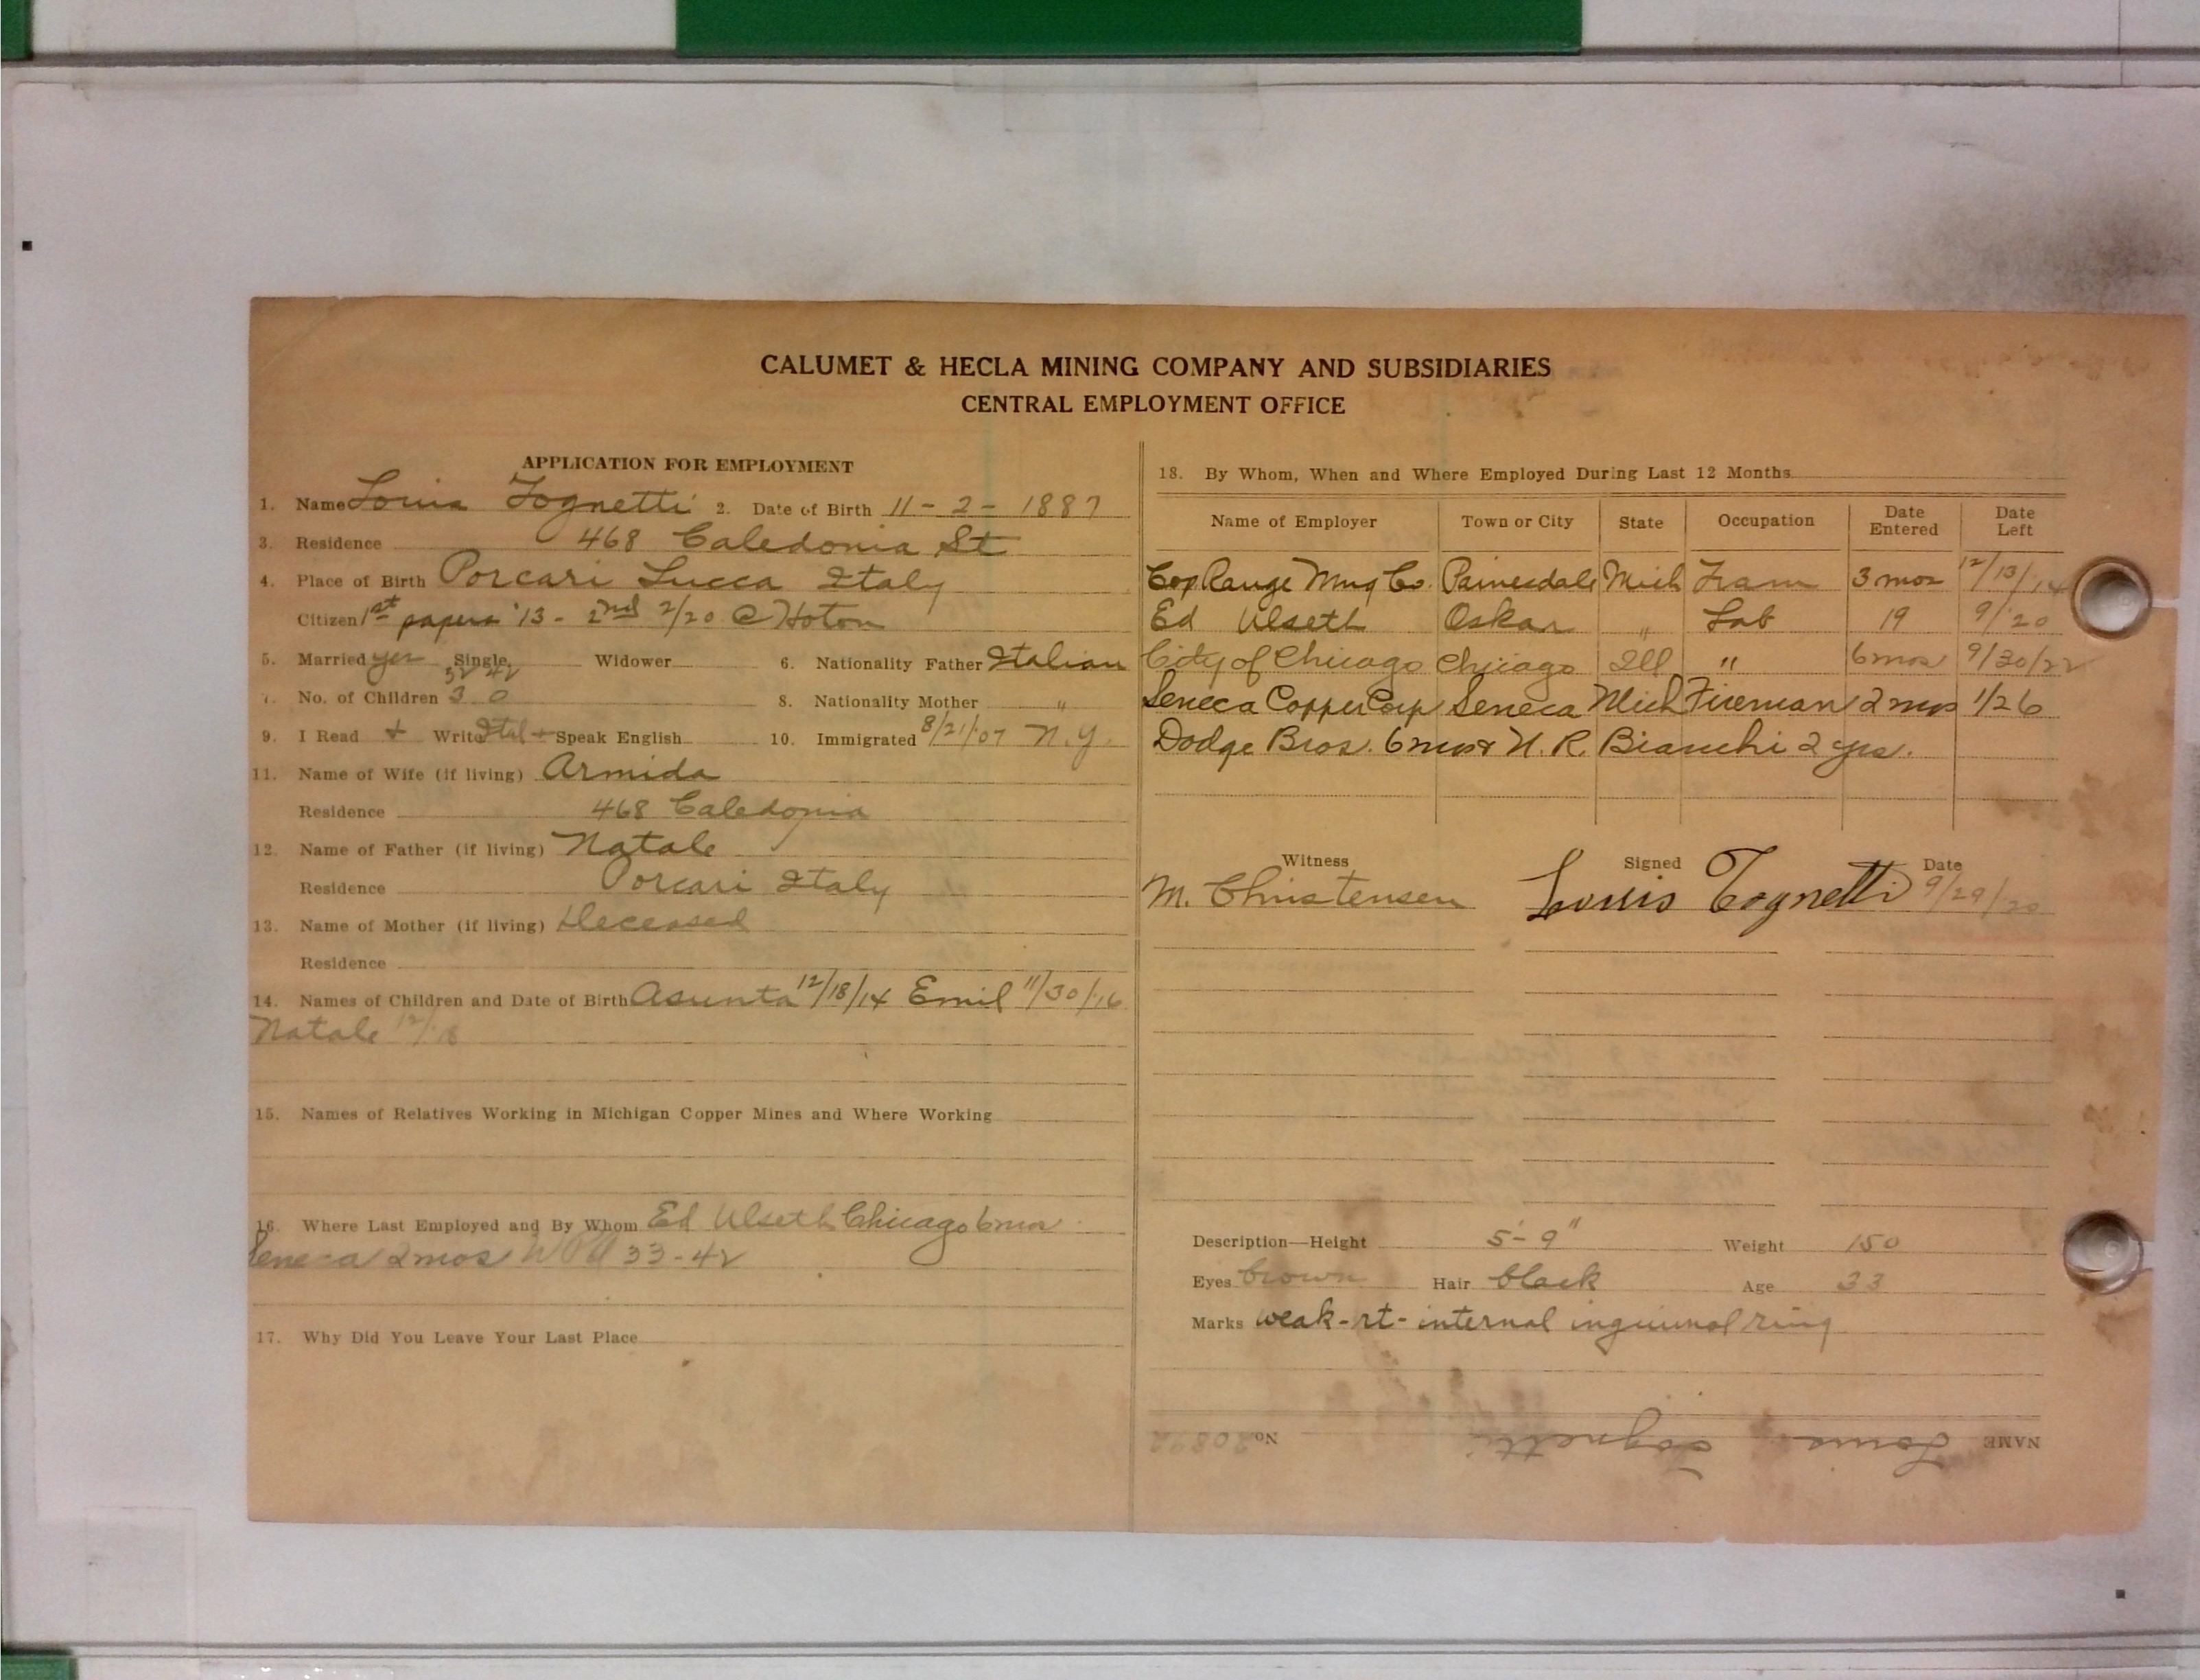 CALUMET & HECLA MINING COMPANY AND SUBSIDIARIES
CENTRAL EMPLOYMENT OFFICE
APPLICATION FOR EMPLOYMENT
1. Name Louis Tognetti 2. Date of Birth 11-2-1887
3. Residence 468 Caledonia St
4. Place of Birth Porcari Lucca Italy
Citizen 1st papers '13 - 2nd 2/20 @ Hoton
5. Married yes Single Widower 6. Nationality Father Italian
52 42
7. No. of Children 3 0 8. Nationality Mother "
9. I Read + Write Ital + Speak English 10. Immigrated 8/21/07 N.Y.
11. Name of Wife (if living) Armida
Residence 468 Caledonia
12. Name of Father (if living) Natale
Residence Porcari Italy
13. Name of Mother (if living) Deceased
Residence
14. Names of Children and Date of Birth Asunta 12/18/14 Emil 11/30/16
Natale 12/18
15. Names of Relatives Working in Michigan Copper Mines and Where Working
16. Where Last Employed and By Whom Ed Ulseth Chicago 6 mos
Seneca 2 mos WPA 33-42
17. Why Did You Leave Your Last Place
18. By Whom, When and Where Employed During Last 12 Months
Name of Employer Town or City State Occupation Date Entered Date Left
Cop Range Mng Co. Painesdale Mich Tram 3 mos 12/13/14
Ed Ulseth Oskar " Lab 19 9/20
City of Chicago Chicago Ill " 6 mos 9/30/22
Seneca Copper Corp Seneca Mich Fireman 2 mos 1/26
Dodge Bros. 6 mos & H. R. Bianchi 2 yrs.
Witness Signed Date
M. Christensen Louis Tognetti 9/29/20
Description—Height 5'-9" Weight 150
Eyes brown Hair black Age 33
Marks weak-rt-internal inguinal ring
NAME Louis Tognetti No. 20892